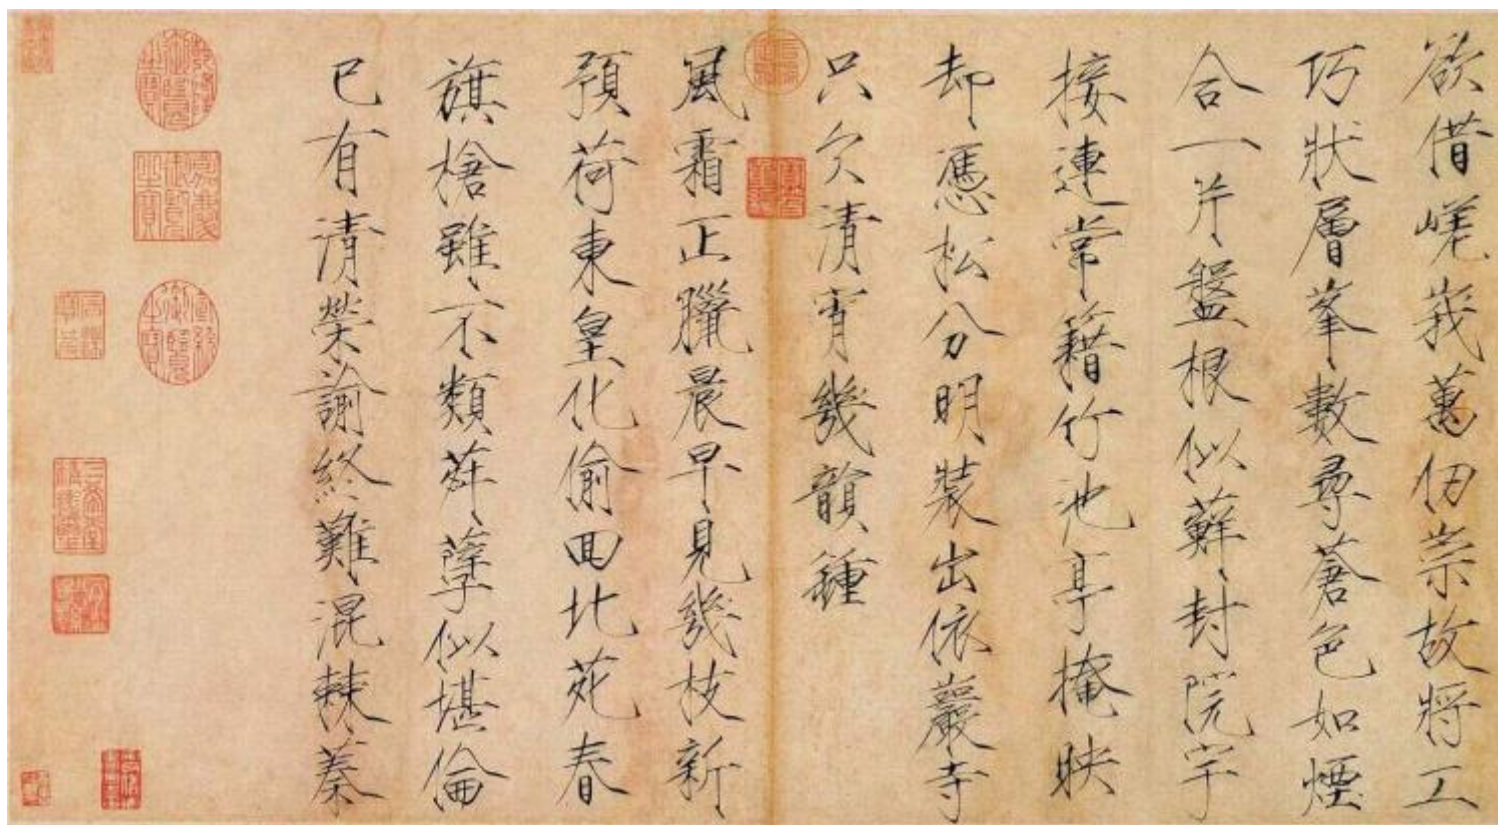 欲借嵯峩萬仞崇故將工
巧狀層峯數尋蒼色如煙
合一片盤根似蘚封院宇
接連常籍竹池亭掩映
却憑松分明裝出依巖寺
只欠清宵幾韻鍾
風霜正臘晨早見幾枝新
預荷東皇化偷回北苑春
旗槍雖不類荈孽似堪倫
已有清榮諭終難混棘蓁